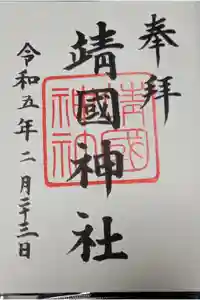 奉拝
靖國神社
令和五年二月二十三日
靖國神社